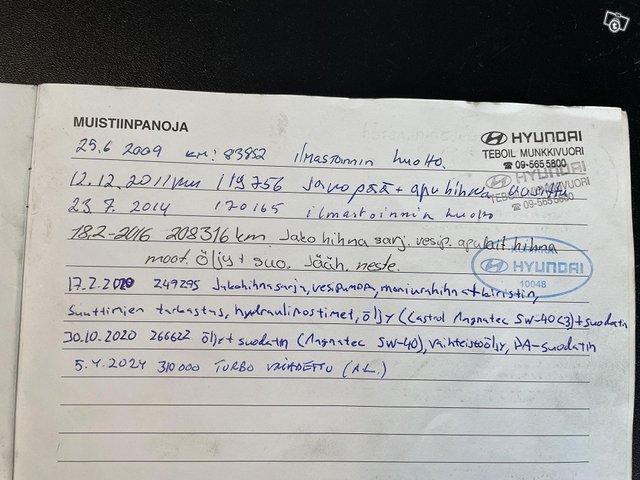 MUISTIINPANOJA
HYUNDAI
TEBOIL MUNKKIVUORI
☎ 09-565 5800
25.6 2009 km: 83852 ilmastoinnin huolto.
HYUNDAI
TEBOIL MUNKKIVUORI
☎ 09-565 5800
12.12.2011 km 119756 Jakopää + apuhihna
23.7.2014 170165 ilmastoinnin huolto
18.2-2016 208316 km Jakohihna sarj. vesip. apulait hihna
moot. öljy + suo. Jääh. neste.
HYUNDAI
10048
17.2.2020 249295 Jakohihnasarja, vesipumppu, moniurahihna + kiristin,
Suuttimien tarkastus, hydraulinostimet, öljy (Castrol Magnatec 5W-40 C3) + suodatin
30.10.2020 266622 öljyt + suodatin (Magnatec 5W-40), vaihteistoöljy, PA-suodatin
5.4.2024 310000 TURBO VAIHDETTU (AL.)